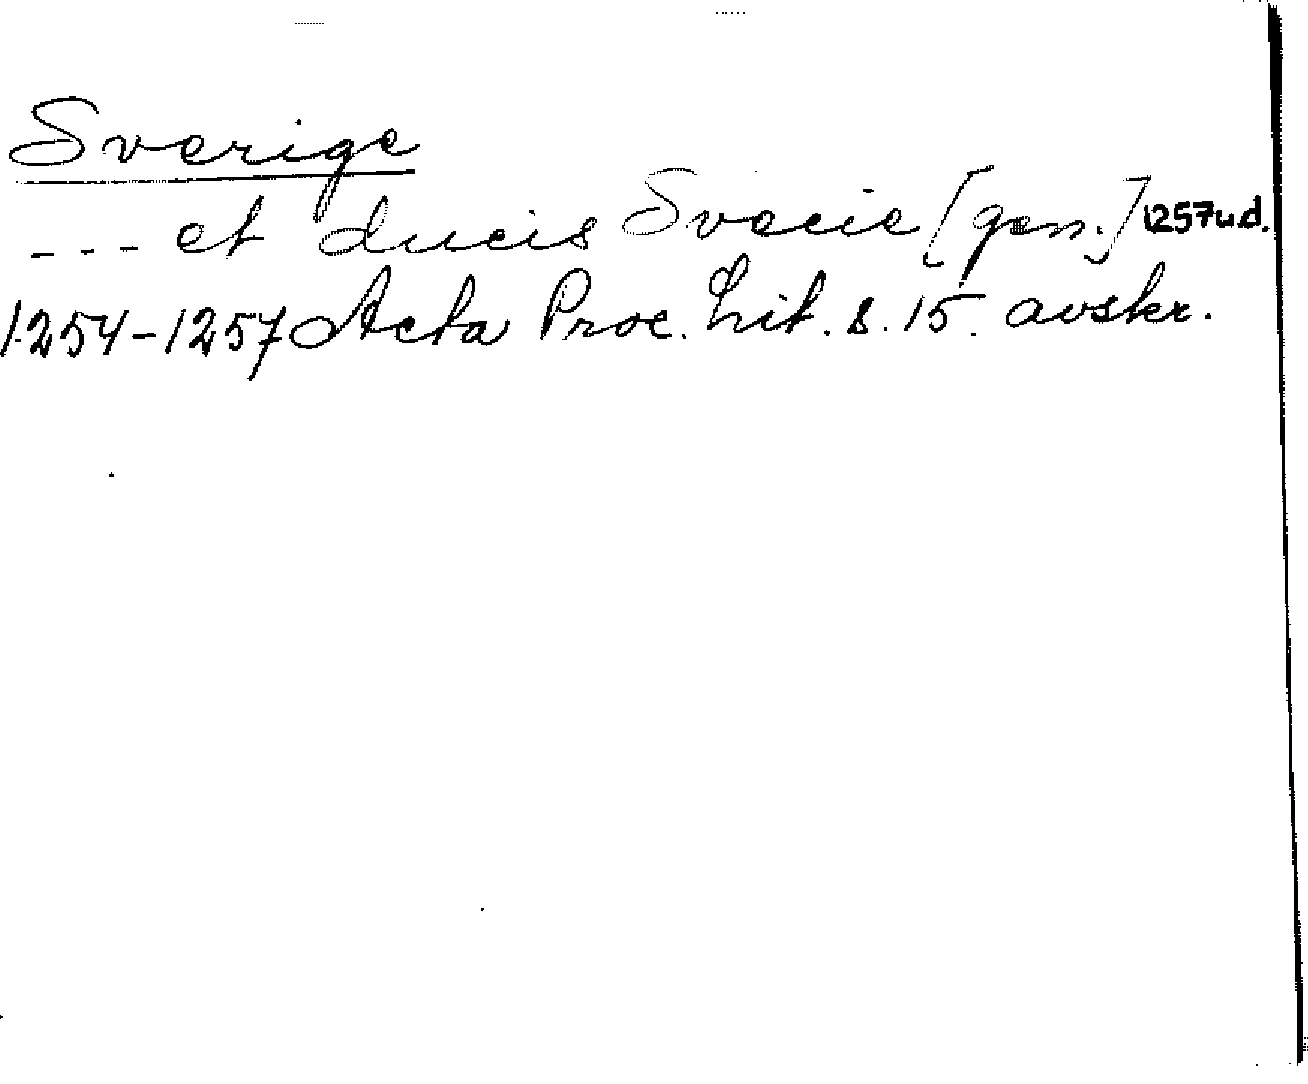 Sverige
--- et ducis Svecie [gen.] 1257 u.d.
1254-1257 Acta Proc. Lit. s. 15. avskr.